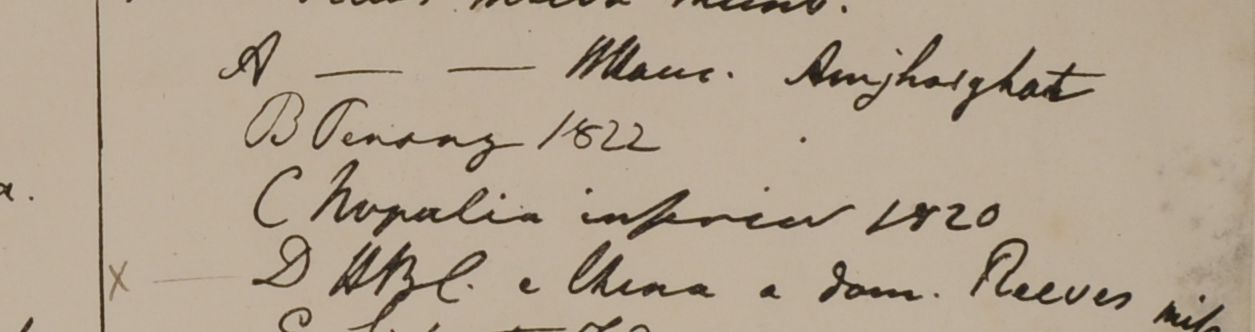 A — — Maur. Amjhorghat
B Penang 1822
C Napalia inferior 1820
X — D HBC. e China a dom. Reeves